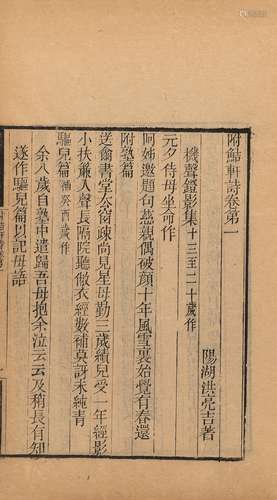 附鮚軒詩卷第一
陽湖洪亮吉著
機聲鐙影集十三至二十歲作
元夕侍母坐命作
阿姊邀題句慈親偶破顏十年風雪裏始覺有春還
附塾篇
送爾書堂令衛疎尚見星母勤三歲績兒受一年經影
小扶藜入聲長隔院聽傲衣經數補莫訝未純青
驅兒篇補癸酉歲作
余八歲自塾中遣歸吾母抱余泣云云及稍長有知
遂作驅兒篇以記母語